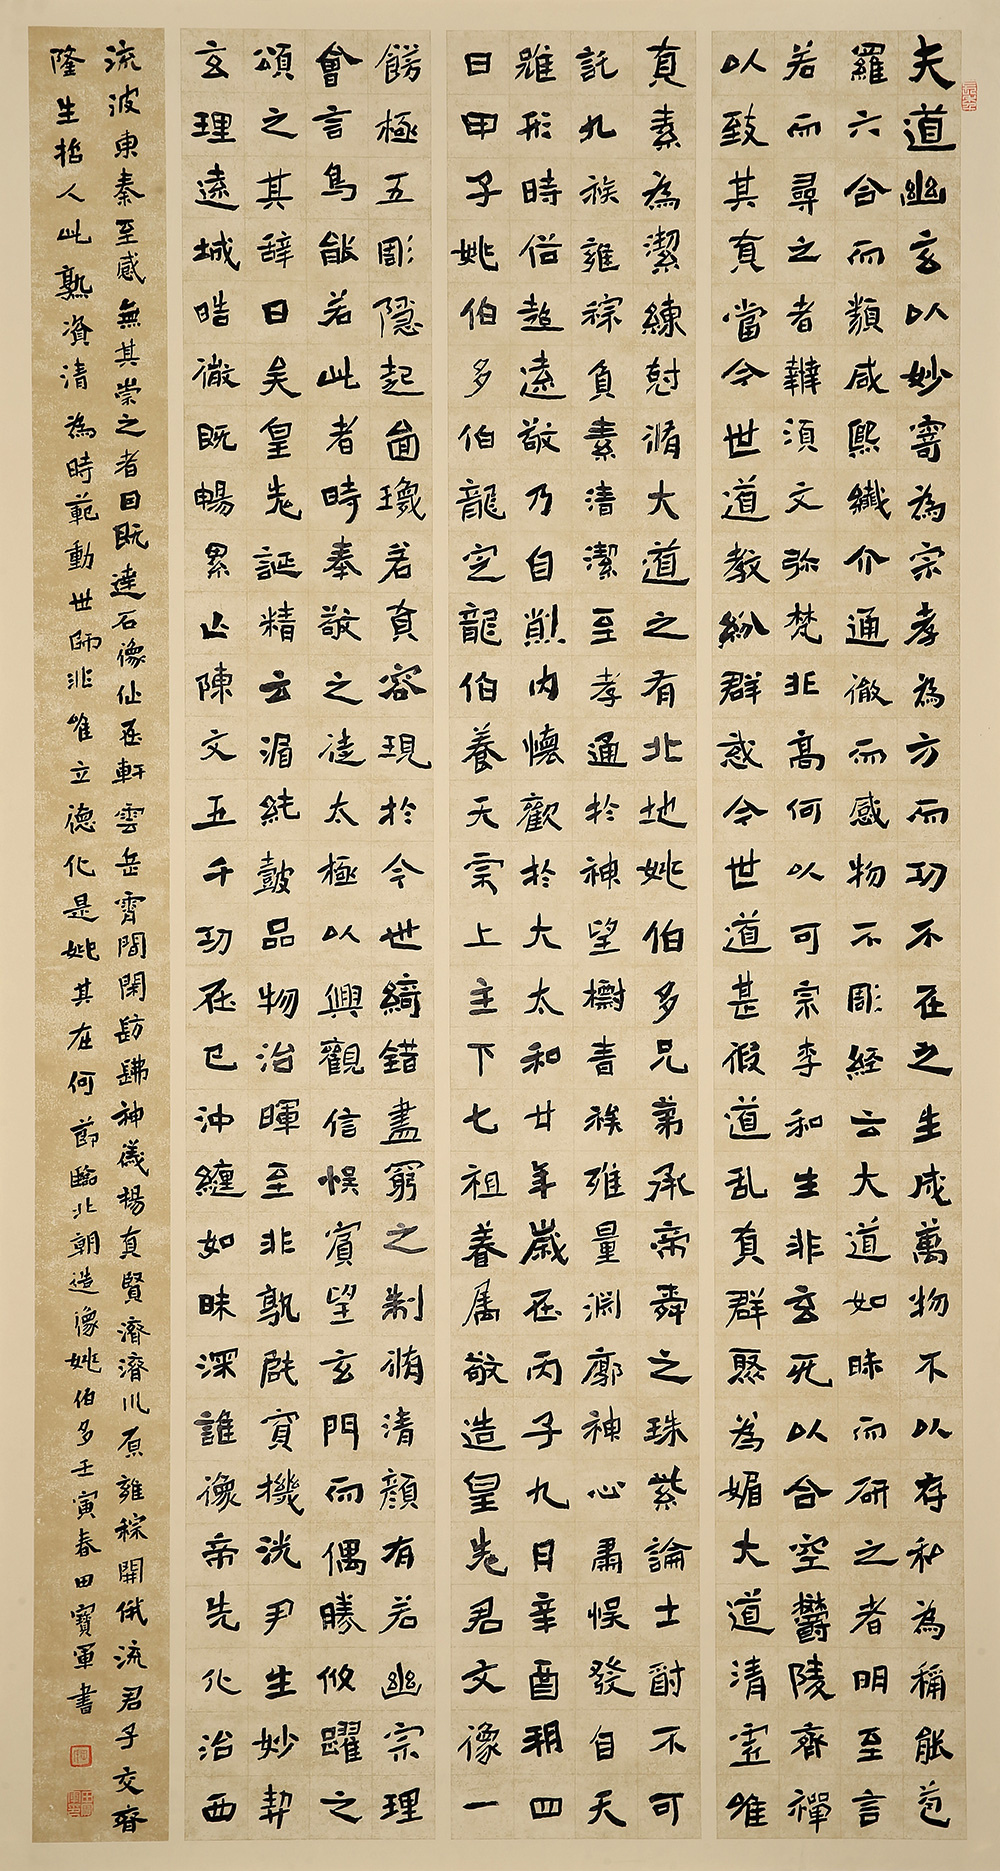 夫道幽玄以妙寄為宗孝為方而功不在之生成萬物不以存私為稱能苞
羅六合而類咸熙纖介通徹而感物不彫经云大道如昧而研之者明至言
若而尋之者韡須文弥梵非高何以可宗李和生非玄死以合空欝陵齊禪
以致其真當今世道教紛群惑今世道甚假道乱真群愍為媚大道清虛唯
真素為潔練尅脩大道之有北地姚伯多兄弟承帝舜之珠紫論士尉不可
託九族雍穄負素清潔至孝通於神望櫥書族雍量渊廓神心肅悮發自天
雖形時俗超遠敬乃自剬内懷歡於大太和廿年歲在丙子九月辛酉朔四
日甲子姚伯多伯龍定龍伯養天宗上主下七祖養属敬造皇先君文像一
餝極五彫隱起面瓌若真容現於今世綺錯盡窮之制脩清顏有若幽宗理
會言鳥能若此者時奉敬之徒太極以興觀信悮賓望玄門而偶勝攸躍之
頌之其辞曰矣皇先誕精云湄純鼓品物治暉至非孰啟寶機洗尹生妙契
玄理遠城晧徹既暢累止陳文五千功在已沖纏如昧深誰像帝先化治西
流波東秦至感無其崇之者曰既達石像仙在軒雲岳霄間閑昉踈神儀楊真賢濟濟川原雍穄開俄流君子交齊
隆生哲人此熟資清為時範動世師非唯立德化是姚其在何 節臨北朝造像姚伯多壬寅春田寶軍書